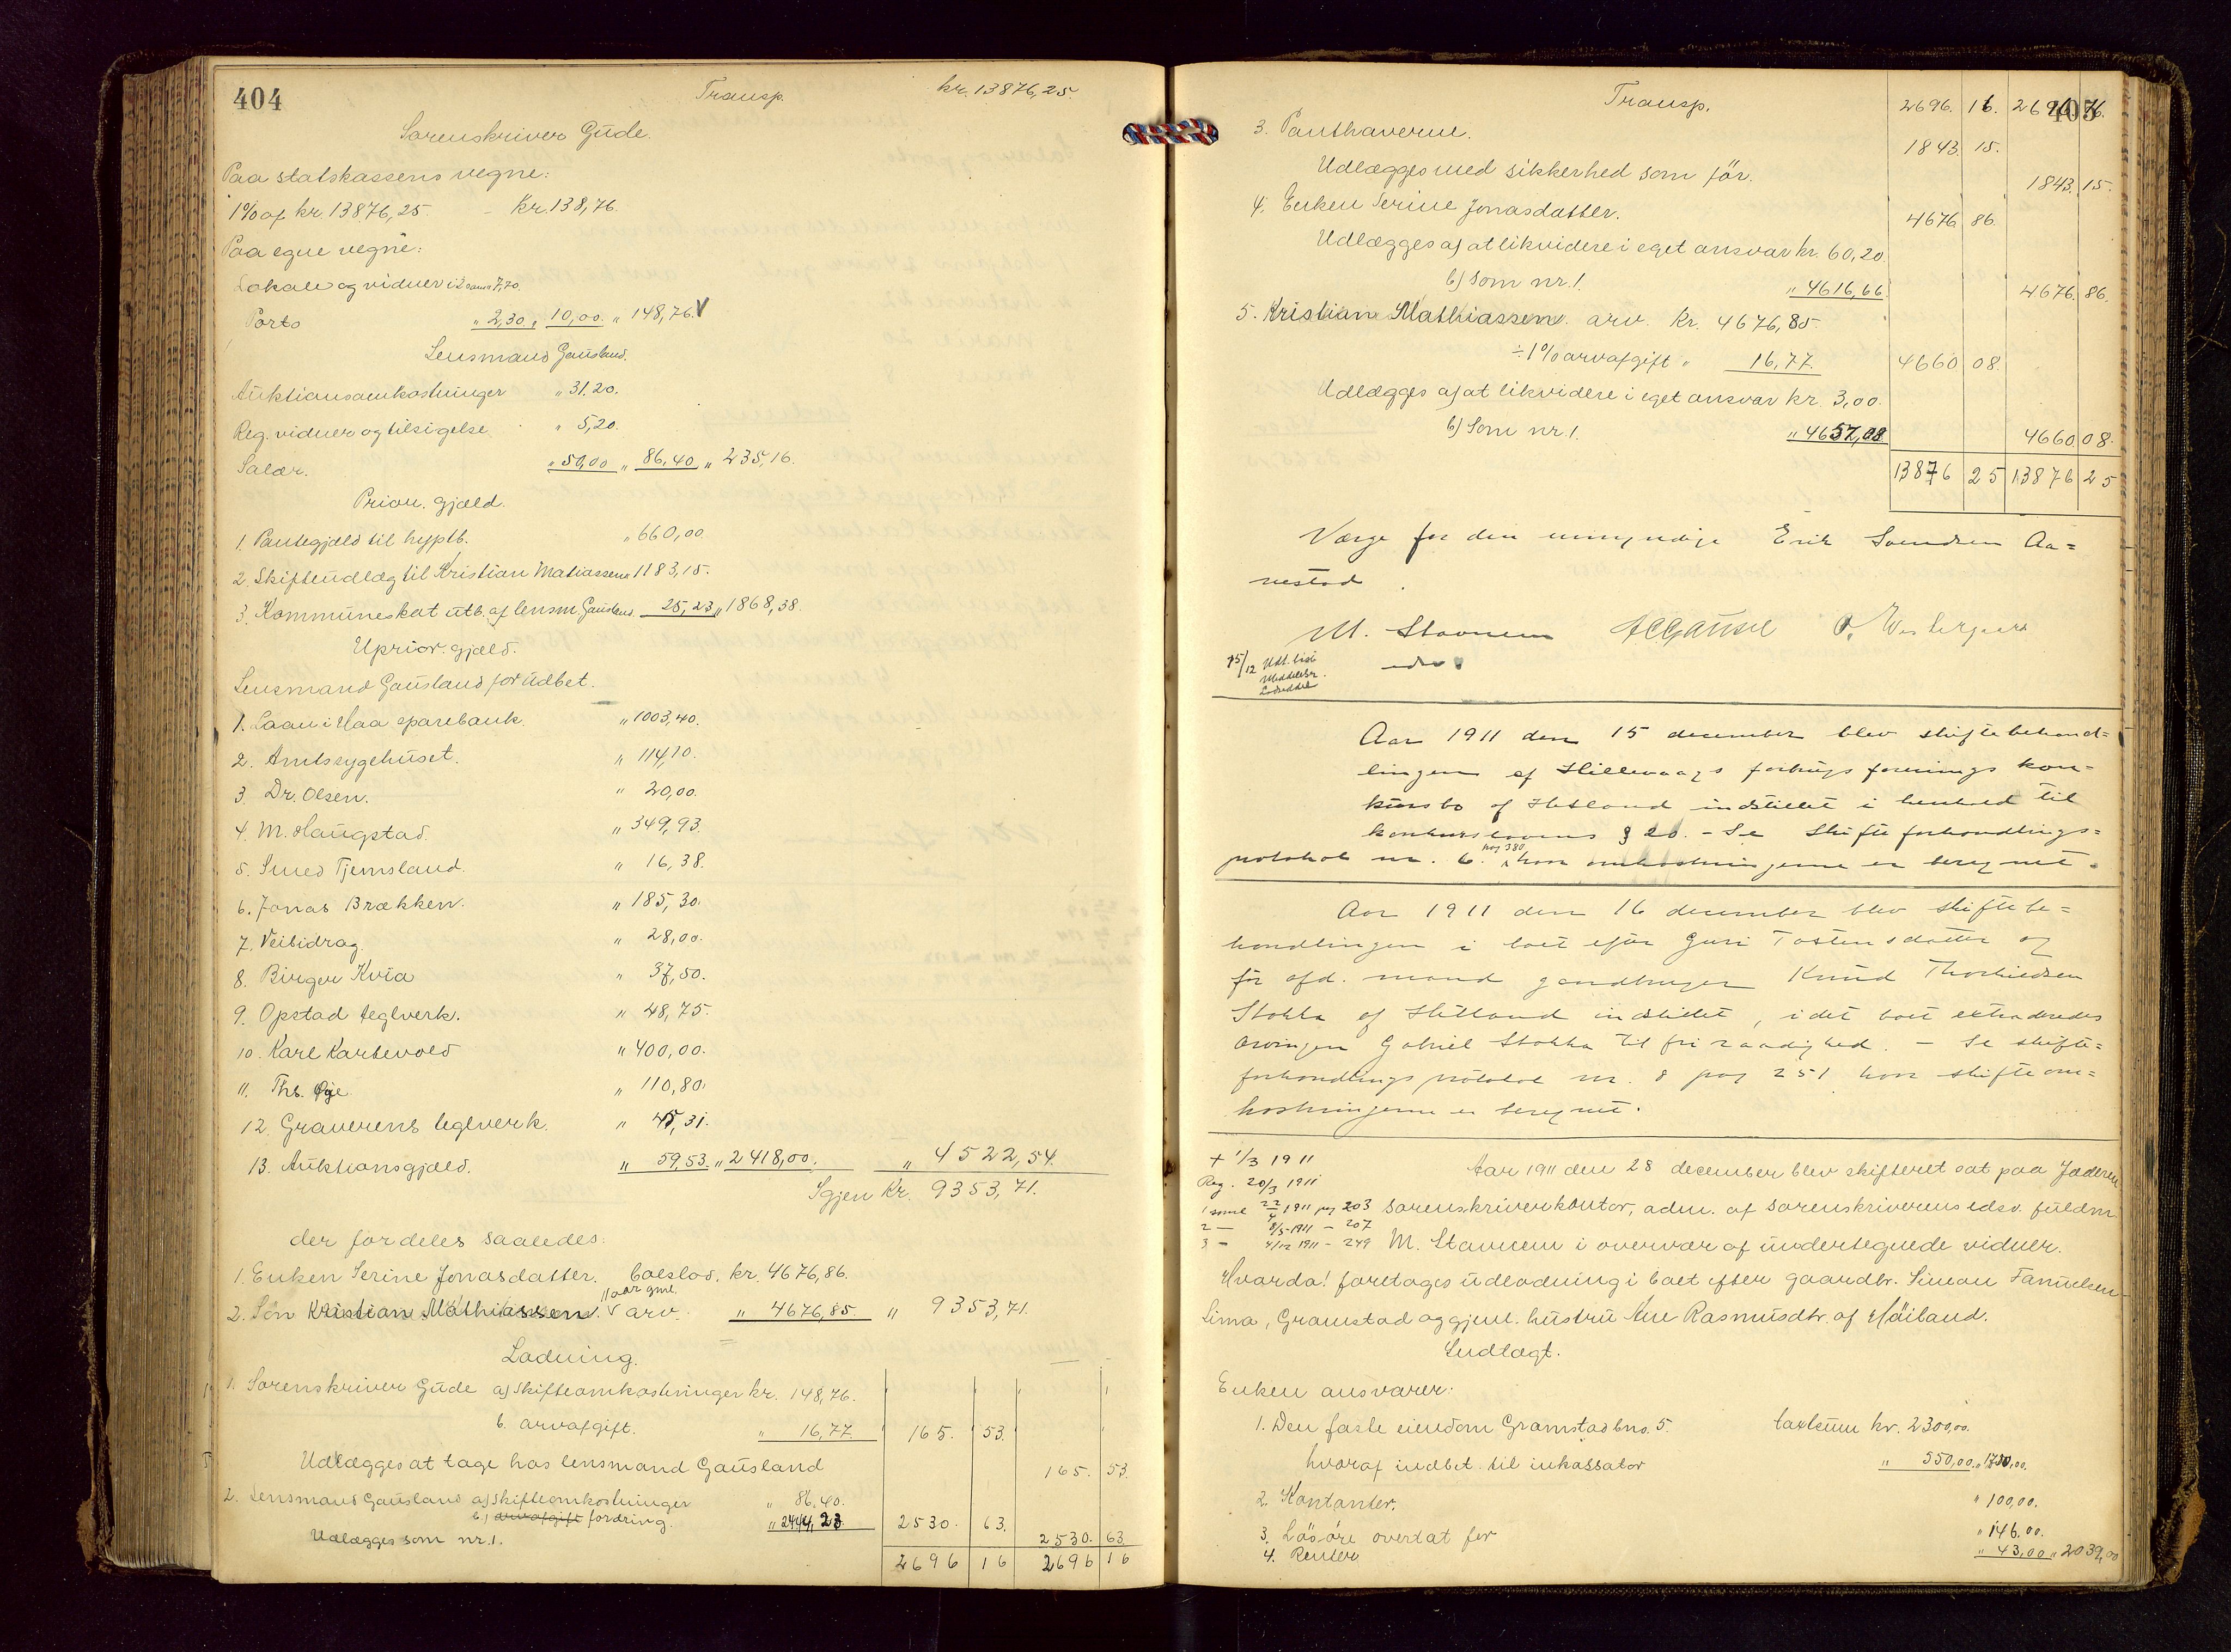 404
Transp. kr. 13876,25.
Sorenskriver Gude.
Paa statskassens vegne:
1% af kr. 13876,25. - Kr. 138,76.
Paa egne vegne:
Lokale og vidner i 2 saml. " 7,70.
Porto " 2,30. " 10,00. " 148,76.
Lensmand Gausland.
Auktionsomkostninger " 31,20.
Reg. vidner og tilsigelse " 5,20.
Salær. " 50,00 " 86,40 " 235,16.
Prior. gjæld.
1. Pantegjæld til hyptb. " 660,00
2. Skifteudlæg til Kristian Matiassen " 1183,15.
3. Kommuneskat utb. af lensm. Gausland 25,23 " 1868,38.
Uprior. gjæld.
Lensmand Gausland for udbet.
1. Laan i Haa sparebank. " 1003,40.
2. Amtssygehuset. " 114,10.
3. Dr. Olsen. " 20,00.
4. M. Haugstad. " 349,93.
5. Smed Tjemsland. " 16,38.
6. Jonas Brækken. " 185,30.
7. Veibidrag. " 28,00.
8. Birger Kvia " 37,50.
9. Opstad teglverk. " 48,75.
10. Karl Kartevold " 400,00.
11. Ths. Øye. " 110,80.
12. Graverens teglverk. " 45,31.
13. Auktionsgjæld. " 59,53. " 2418,00. " 4522,54.
Igjen Kr. 9353,71.
der fordeles saaledes:
1. Enken Serine Jonasdatter. boeslod. kr. 4676,86.
2. Søn Kristian Mathiassen. 11 aar gml. arv. " 4676,85 " 9353,71.
Lodning.
1. Sorenskriver Gude a) Skifteomkostninger kr. 148,76.
b. arvafgift. " 16,77. 165. 53.
Udlægges at tage hos lensmand Gausland 165. 53.
2. Lensmand Gausland a) Skifteomkostninger " 86,40.
b.) arvafgift fordring. " 2444,23 2530. 63.
Udlægges som nr. 1. 2530. 63
2696 16 2696 16
405
Transp. 2696. 16. 2696 16.
3. Panthaverne. 1843. 15.
Udlægges med sikkerhed som før. 1843. 15.
4. Enken Serine Jonasdatter. 4676 86.
Udlægges a) at likvidere i eget ansvar kr. 60,20.
b) Som nr. 1. " 4616,66 4676. 86.
5. Kristian Mathiassen. arv. Kr. 4676,85.
÷ 1% arvafgift " 16,77. 4660 08.
Udlægges a) at likvidere i eget ansvar kr. 3,00.
b) Som nr. 1. " 4657,08 4660 08.
13876 25 13876 25
Værge for den umyndige Erik Svendsen Aa=
nestad.
M. Stavnem A C Gausel O. Westergaard
edsv.
15/12 Udl. list
Meddelelser.
Lodseddel
Aar 1911 den 15 december blev skiftebehand=
lingen af Hillevaags forbrugsforenings kon=
kursbo af Hetland indstillet i henhold til
konkurslovens § 20. – Se Skifteforhandlings=
protokol nr. 6. pag 380 hvor omkostningerne er beregnet.
Aar 1911 den 16 december blev skiftebe=
handlingen i boet efter Guri Tostensdatter og
før afd. mand gaardbruger Knud Thorkildsen
Stokka af Hetland indstillet, idet boet extraderedes
arvingen Gabriel Stokka til fri raadighed. – Se skifte=
forhandlingsprotokol nr. 8 pag 251 hvor skifteom=
kostningerne er beregnet.
+ 1/3 1911
Reg. 20/3 1911
1 saml 22/4 1911 pag 203
2 — 8/5 1911 - 207
3 — 4/12 1911 - 249
Aar 1911 den 28 december blev skifteret sat paa Jæderen
sorenskriverkontor, adm. af sorenskriverens edsv. fuldm.
M. Stavnem i overvær af undertegnede vidner.
Hvorda! foretages udlodning i boet efter gaardbr. Simon Tanuelsen
Lima, Gramstad og gjenl. hustru Ane Rasmusdtr. af Høiland.
Indtægt.
Enken ansvarer:
1. Den faste eiendom Gramstad bno. 5. taxtsum kr. 2300,00.
hvoraf indbet. til inkassator " 550,00. " 1750,00.
2. Kontanter. " 100,00.
3. Løsøre overtat for " 146.00.
4. Renter " 43,00 " 2039,00